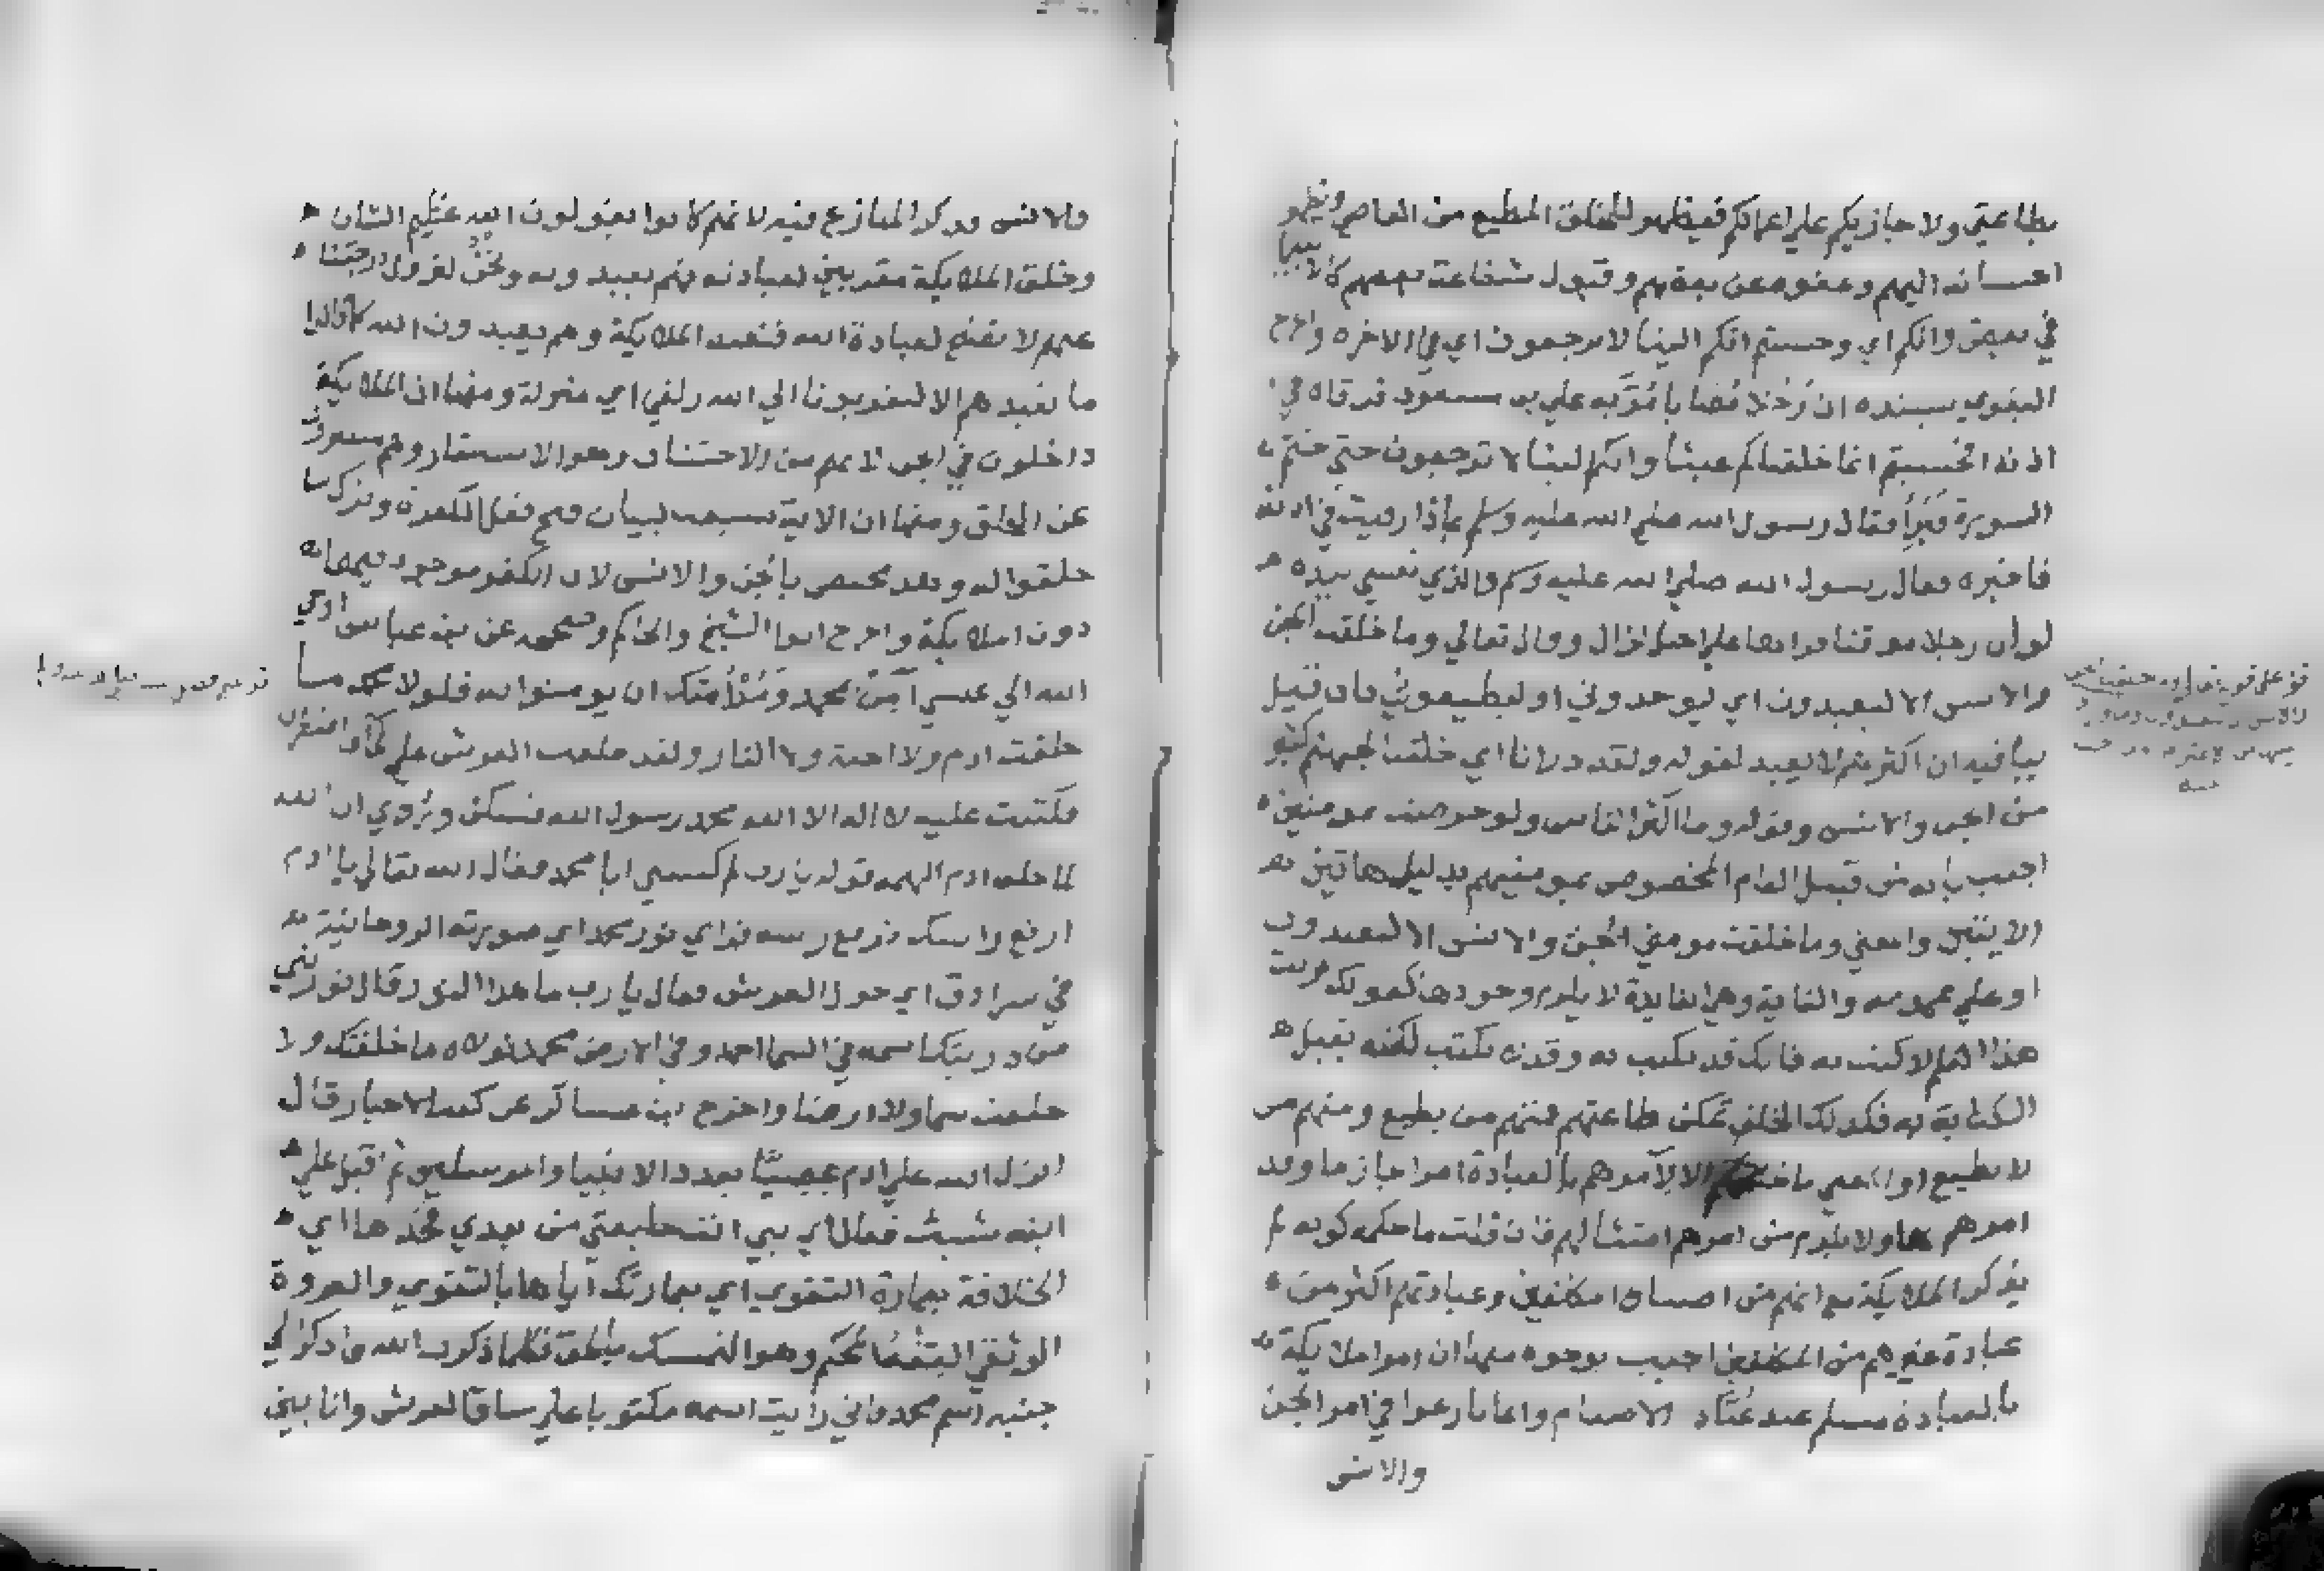 بطاعتي ولا جازيكم علي اعمالكم فيظهر للخلق المطيع من العاصي ويظهر
احسانه اليهم وعفوه عن بعضهم وقبول شفاعة بعضهم كالانبيا
في بعض وانكم اي وحسبتم انكم الينا لا ترجعون اي في الاخره واخرج
البغوي بسنده ان رجلا مصابا مر به علي بن مسعود فرقاه في
اذنه افحسبتم انما خلقناكم عبثا وانكم الينا لا ترجعون حتي ختم
السورة فبرأ فقال رسول الله صلي الله عليه وسلم بماذا رقيت في اذنه
فاخبره فقال رسول الله صلي الله عليه وسلم والذي نفسي بيده
لو ان رجلا موقنا قراها علي جبل لزال وقال تعالي وما خلقت الجن
والانس الا ليعبدون اي ليوحدوني او ليطيعوني فان قيل
ينافيه ان اكثرهم لا يعبد لقوله ولقد ذرانا اي خلقنا لجهنم كثيرا
من الجن والانس وقوله وما اكثر الناس ولو حرصت بمومنين
اجيب بانه من قبيل العام المخصوص بمومنيهم بدليل هاتين
الايتين والمعني وما خلقت مومني الجن والانس الا ليعبدون
او علي عمومه والغاية وهي الفايدة لا يلزم وجودها كقولك بريت
هذا القلم لاكتب به فانك قد تكتب به وقد لا تكتب لكنه يقبل
الكتابة به فكذلك الخلق تمكن طاعتهم فمنهم من يطيع ومنهم من
لا يطيع او المعني ما خلقتهم الا لآمرهم بالعبادة امرا جازما وقد
امرهم بها ولا يلزم من امرهم امتثالهم فان قلت ما حكمه كونه لم
يذكر الملايكة مع انهم من اصناف المكلفين وعبادتهم اكثر من
عبادة غيرهم من المكلفين اجيب بوجوه منها ان امر الملايكة
بالعبادة مسلم عند عُبَّاد الاصنام وانما نازعوا في امر الجن
والانس
والانس وذكر المنازع فيه لانهم كانوا يقولون الله عظيم الشان
وخلق الملايكة مقربين لعبادته فهم يعبدونه ونحن لنزول درجتنا
عنهم لا نصلح لعبادة الله فنعبد الملايكة وهم يعبدون الله كما قالوا
ما نعبدهم الا ليقربونا الي الله زلفي اي منزلة ومنها ان الملايكة
داخلون في الجن لانهم من الاجتنان وهو الاستتار وهم مستورون
عن الخلق ومنها ان الاية سيقت لبيان قبح فعل الكفرة وتركهم ما
خلقوا له وهذا مختص بالجن والانس لان الكفر موجود فيهما
دون الملايكة واخرج ابوا الشيخ والحاكم وصححه عن بن عباس اوحي
الله الي عيسي آمِن بمحمد ومُرْ أمتك ان يومنوا به فلولا محمد ما
خلقت ادم ولا الجنة ولا النار ولقد خلقت العرش علي الماء فاضطرب
فكتبت عليه لا اله الا الله محمد رسول الله فسكن وروي ان الله
لما خلق ادم الهمه قوله يارب لم كنيتني ابا محمد فقال الله تعالي يا ادم
ارفع راسك فرفع راسه فراي نور محمد اي صورته الروحانية
في سرادق اي حول العرش فقال يا رب ما هذا النور قال نور نبي
من ذريتك اسمه في السما احمد وفي الارض محمد لولاه ما خلقتك ولا
خلقت سما ولا ارضا واخرج ابن عساكر عن كعب الاحبار قال
انزل الله علي ادم عصيًا بعدد الانبيا والمرسلين ثم اقبل علي
ابنه شيث فقال اي بني انت خليفتي من بعدي فخذها اي
الخلافة بعمارة التقوي اي بعمارتك اياها بالتقوي والعروة
الوثقي المحكم وهو التمسك فكلما ذكرت الله فاذكر الي
جنبه اسم محمد فاني رايت اسمه مكتوبا علي ساق العرش وانا بين